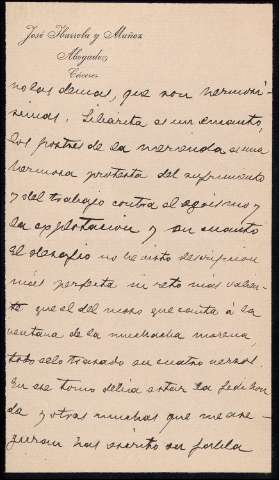 José Ibarrola y Muñoz
Abogado
Cáceres
no las demas, que son hermosí-
simas. Libarita es un encanto,
los postres de la merienda es una
hermosa protesta del sufrimiento
y del trabajo contra el egoismo y
la explotacion y en cuanto
El desafio no he visto descripcion
mas perfecta ni reto mas valien-
te que el del mozo que canta á la
ventana de la muchacha morena,
todo ello trazado en cuatro versos.
En ese tomo debia estar la
y otras muchas que me ase-
guran has escrito en